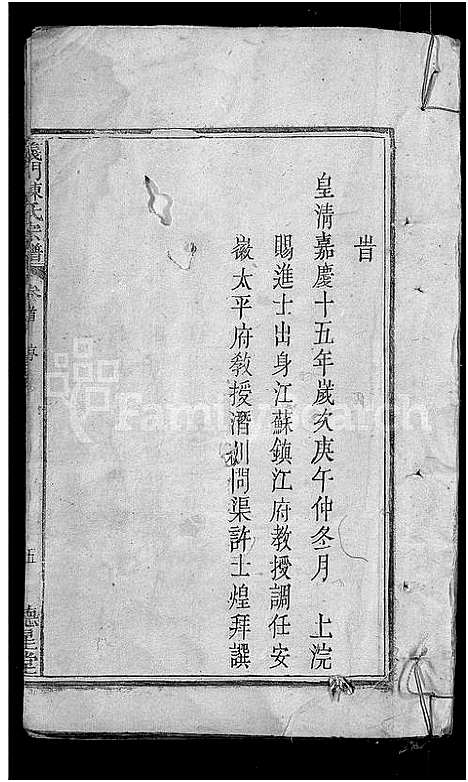 旹
皇清嘉慶十五年歲次庚午仲冬月 上浣
賜進士出身江蘇鎮江府教授調任安
徽太平府教授潛川問渠許士煌拜譔
義門陳氏宗譜
卷首
五
德星堂
FamilySearch